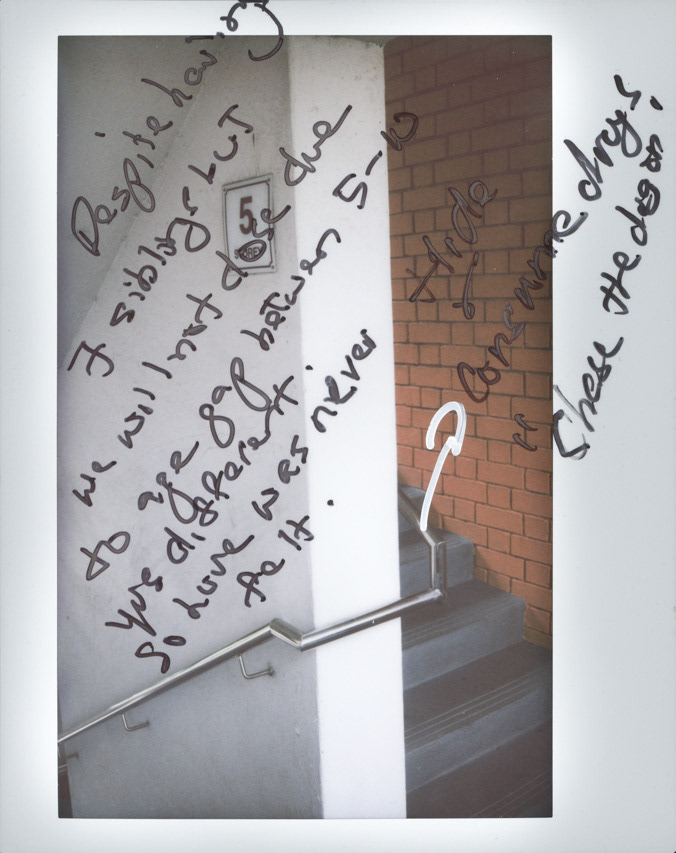 Despite having
7 siblings but
we will not close due
to age gap between 5-10
yrs different.
So love was never
felt.
Hide
to
Consume drugs
"Chase the dragon".
5